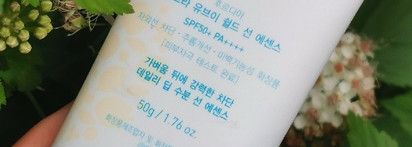 투유디어
라 유브이 쉴드 선 에센스
SPF50+ PA++++
자외선 차단 · 주름개선 · 미백기능성 화장품
[피부자극 테스트 완료]
가벼움 뒤에 강력한 차단
데일리 딥 수분 선 에센스
50g / 1.76 oz.